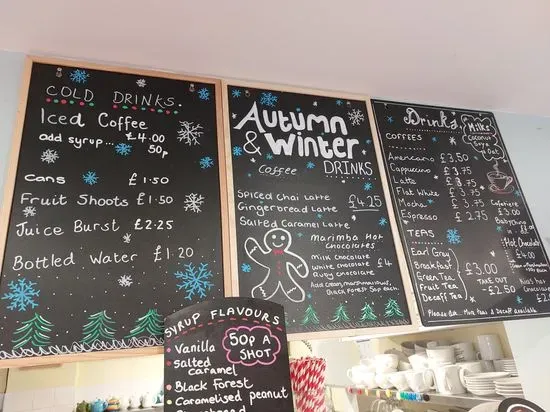 COLD DRINKS.
Iced Coffee
£4.00
add syrup... 50p
Cans £1.50
Fruit Shoots £1.50
Juice Burst £2.25
Bottled Water £1.20
Autumn
& Winter
Coffee DRINKS
Spiced Chai Latte
Gingerbread Latte £4.25
Salted Caramel Latte
Marimba Hot
Chocolates
Milk chocolate
White chocolate £4
Ruby chocolate
Add cream, marshmallows,
Black Forest 50p each.
SYRUP FLAVOURS
50P A
SHOT
Vanilla
Salted
Caramel
Black Forest
Caramelised peanut
Drinks
Milks
Coconut
Soya
Oat
COFFEES
Americano £3.50
Cappuccino £3.75
Latte £3.75
Flat White £3.75
Mocha £3.75
Espresso £2.75
Cafetiere
£3.00
Babyccino
Hot Chocolate
£4.00
TEAS
Earl Grey
Breakfast £3.00
Green Tea
Fruit Tea
Decaf Tea
TAKE OUT
-£2.50
Kids hot
chocolate
£2.50